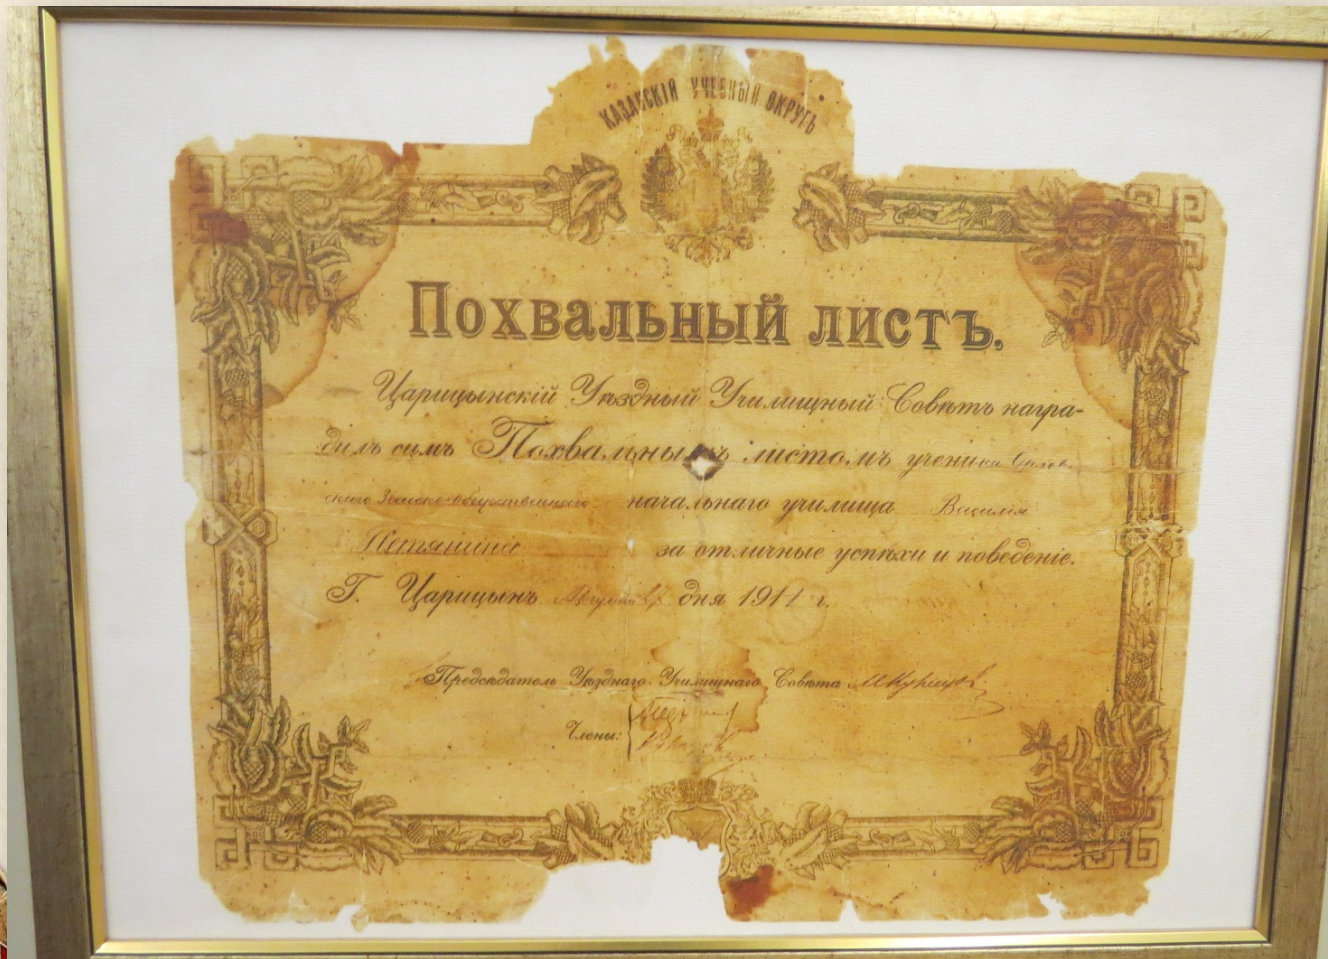 КАЗАНСКІЙ УЧЕБНЫЙ ОКРУГЪ
Похвальный листъ.
Царицынскій Уѣздный Училищный Совѣтъ награ-
дилъ симъ Похвальнымъ листомъ ученика
скаго Земско-общественнаго начальнаго училища Василія
за отличные успѣхи и поведеніе.
Г. Царицынъ Августа 27 дня 1911 г.
Предсѣдатель Уѣзднаго Училищнаго Совѣта
Члены: